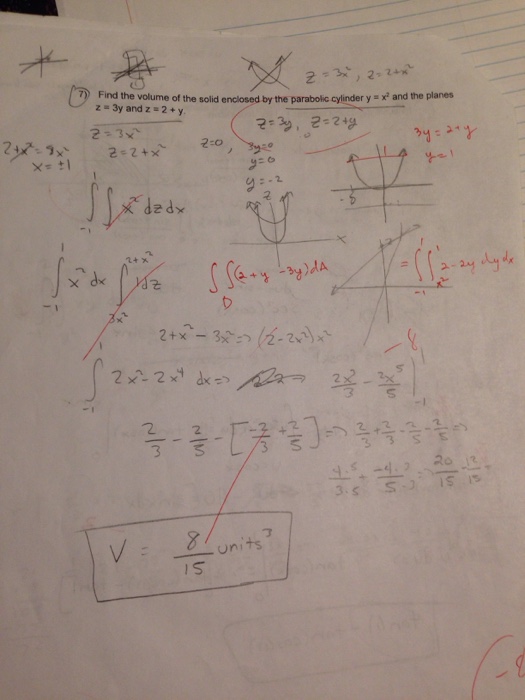 z = 3x², z = 2+x²
7) Find the volume of the solid enclosed by the parabolic cylinder y = x² and the planes
z = 3y and z = 2 + y.
z = 3x²
z = 2+x²
x = ±1
z=0, 3y=0
y=0
y=-2
z=3y, z=2+y
3y = 2+y
y=1
∫₋₁¹ ∫ x² dz dx
z
x
∫₋₁¹ x² dx ∫_{3x²}^{2+x²} 1 dz
∫∫_D (2+y-3y) dA
= ∫₋₁¹ ∫_{x²}^1 2-2y dy dx
2+x² - 3x² => (2-2x²)x²
-8
∫₋₁¹ 2x² - 2x⁴ dx => 2x³/3 - 2x⁵/5 |₋₁¹
2/3 - 2/5 - [-2/3 + 2/5] => 2/3 + 2/3 - 2/5 - 2/5 =>
4·5/3·5 + -4·3/5·3 => 20/15 - 12/15 =
V = 8/15 units³
-8